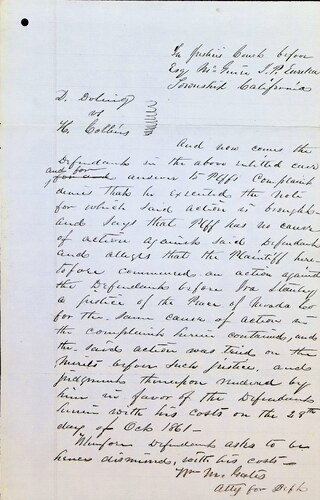 In Justices Court before
Esq McGuire J.P. Eureka
Township California
D. Doling
vs
H. Collins
And now comes the
Defendant in the above entitled cause
and for answer to Plffs Complaint
denies that he executed the Note
for which said action is brought
and says that Plff has no cause
of action against said Defendant
and alleges that the Plaintiff here-
tofore commenced an action against
the Defendant before Ira Stanley
a Justice of the Peace of Nevada Co
for the same cause of action in
the complaint herein contained, and
the said action was tried on the
Merits before such Justice, and
judgment thereupon rendered by
him in favor of the Defendant
herein with his costs on the 28th
day of Oct 1861-
Wherefore Defendant asks to be
hence dismissed, with his costs-
Wm M. Gates
Atty for Deft